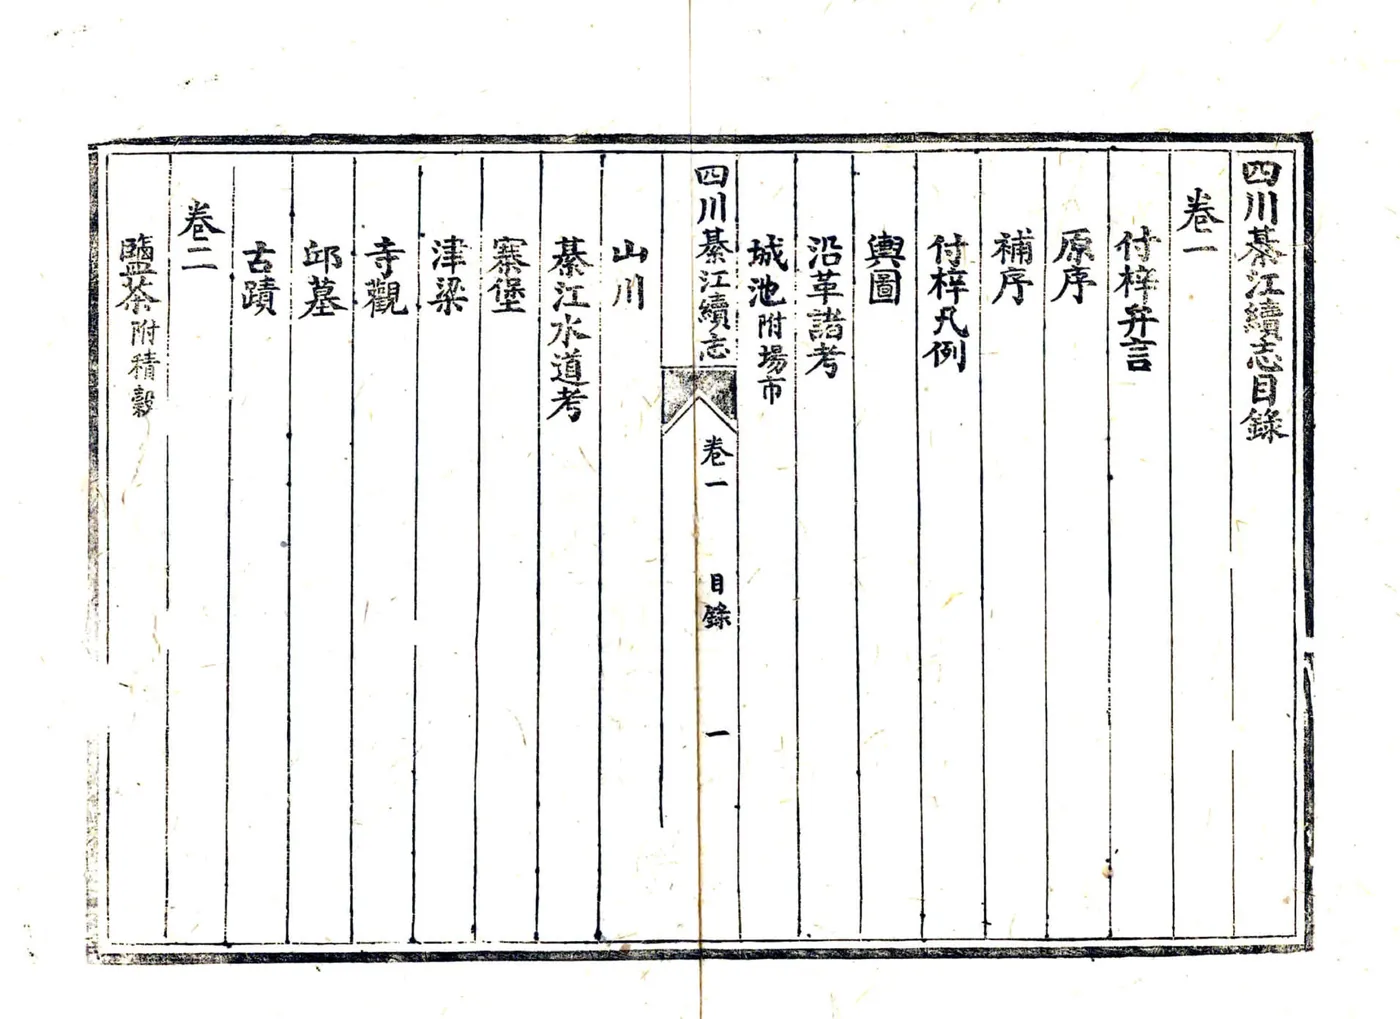 四川綦江續志目錄
卷一
付梓弁言
原序
補序
付梓凡例
輿圖
沿革諸考
城池附場市
四川綦江續志 卷一 目錄 一
山川
綦江水道考
寨堡
津梁
寺觀
邱墓
古蹟
卷二
鹽茶附積穀